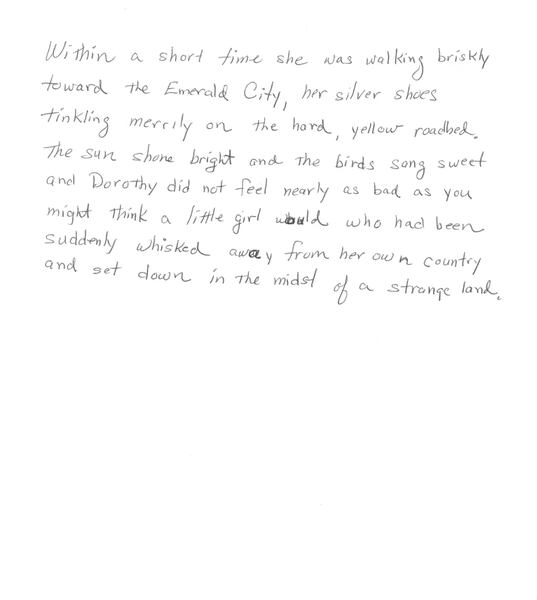 Within a short time she was walking briskly
toward the Emerald City, her silver shoes
tinkling merrily on the hard, yellow roadbed.
The sun shone bright and the birds song sweet
and Dorothy did not feel nearly as bad as you
might think a little girl would who had been
suddenly whisked away from her own country
and set down in the midst of a strange land.